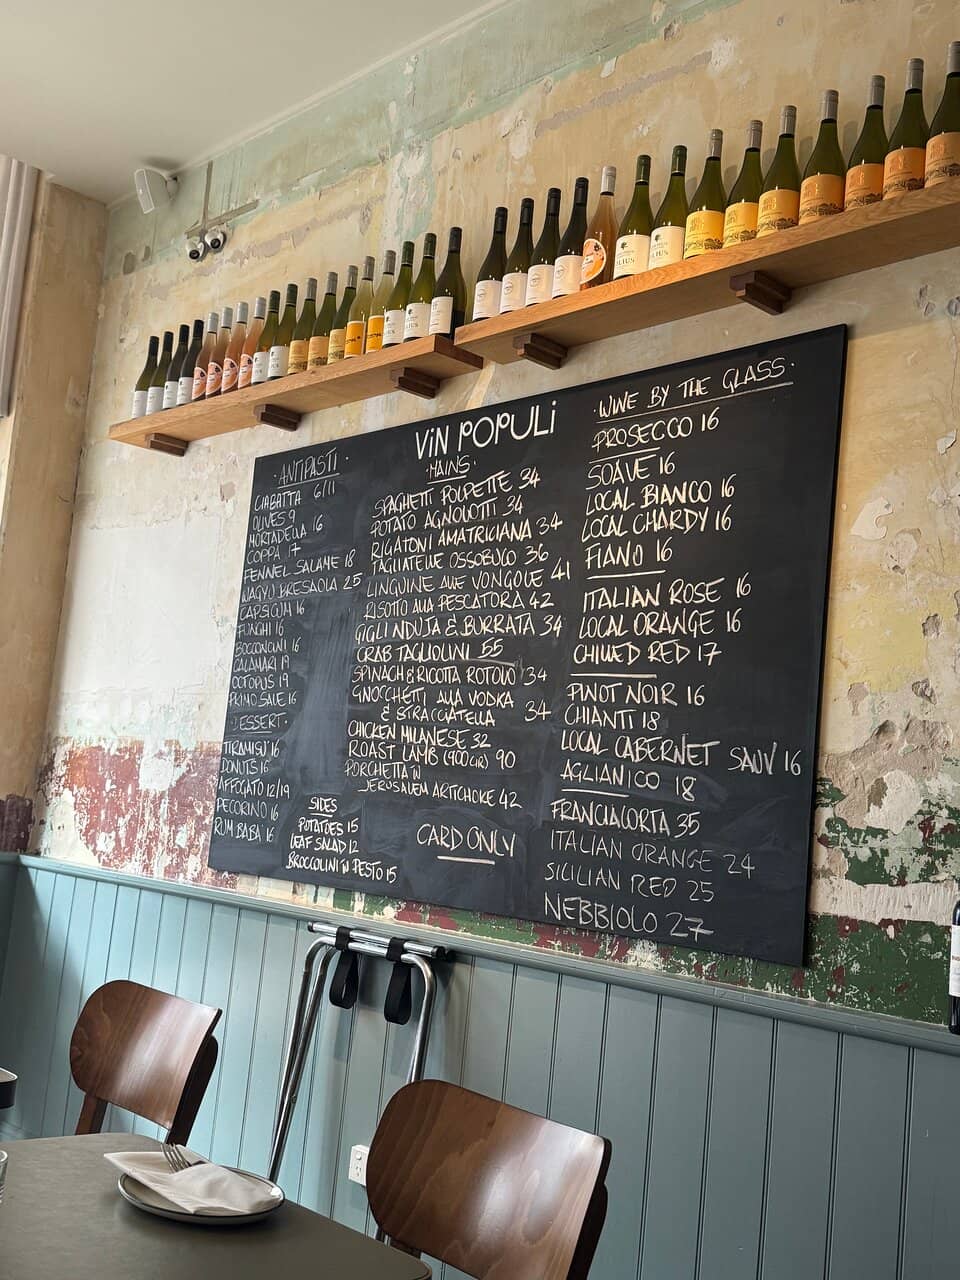 VIN POPULI
·ANTIPASTI·
CIABATTA 6/11
OLIVES 9
MORTADELLA 16
COPPA 17
FENNEL SALAME 18
WAGYU BRESAOLA 25
CAPSICUM 16
FUNGHI 16
BOCCONCINI 16
CALAMARI 19
OCTOPUS 19
PRIMO SALE 16
·DESSERT·
TIRAMISU 16
DONUTS 16
AFFOGATO 12/19
PECORINO 16
RUM BABA 16
·MAINS·
SPAGHETTI POLPETTE 34
POTATO AGNOLOTTI 34
RIGATONI AMATRICIANA 34
TAGLIATELLE OSSOBUCO 36
LINGUINE ALLE VONGOLE 41
RISOTTO ALLA PESCATORA 42
GIGLI NDUJA & BURRATA 34
CRAB TAGLIOLINI 55
SPINACH & RICOTTA ROTOLO 34
GNOCCHETTI ALLA VODKA
& STRACCIATELLA 34
CHICKEN MILANESE 32
ROAST LAMB (900GR) 90
PORCHETTA W
JERUSALEM ARTICHOKE 42
SIDES
POTATOES 15
LEAF SALAD 12
BROCCOLINI W PESTO 15
CARD ONLY
·WINE BY THE GLASS·
PROSECCO 16
SOAVE 16
LOCAL BIANCO 16
LOCAL CHARDY 16
FIANO 16
ITALIAN ROSE 16
LOCAL ORANGE 16
CHILLED RED 17
PINOT NOIR 16
CHIANTI 18
LOCAL CABERNET SAUV 16
AGLIANICO 18
FRANCIACORTA 35
ITALIAN ORANGE 24
SICILIAN RED 25
NEBBIOLO 27